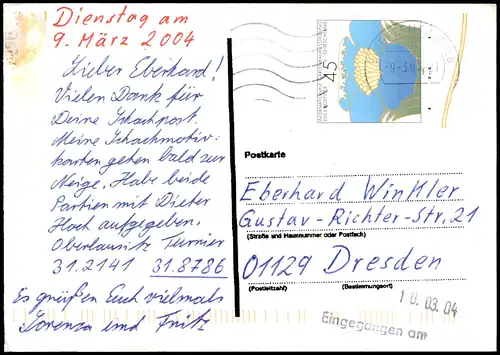 Dienstag am
9. März 2004
Lieber Eberhard!
Vielen Dank für
Deine Schachpost.
Meine Schachmotiv-
karten gehen bald zur
Neige. Habe beide
Partien mit Dieter
Hoch aufgegeben.
Oberlausitz Turnier
31.2141 31.8786
Es grüßen Euch vielmals
Lorenza und Fritz
45
Postkarte
Eberhard Winkler
Gustav-Richter-Str. 21
(Straße und Hausnummer oder Postfach)
01129 Dresden
(Postleitzahl) (Bestimmungsort)
10.03.04
Eingegangen am